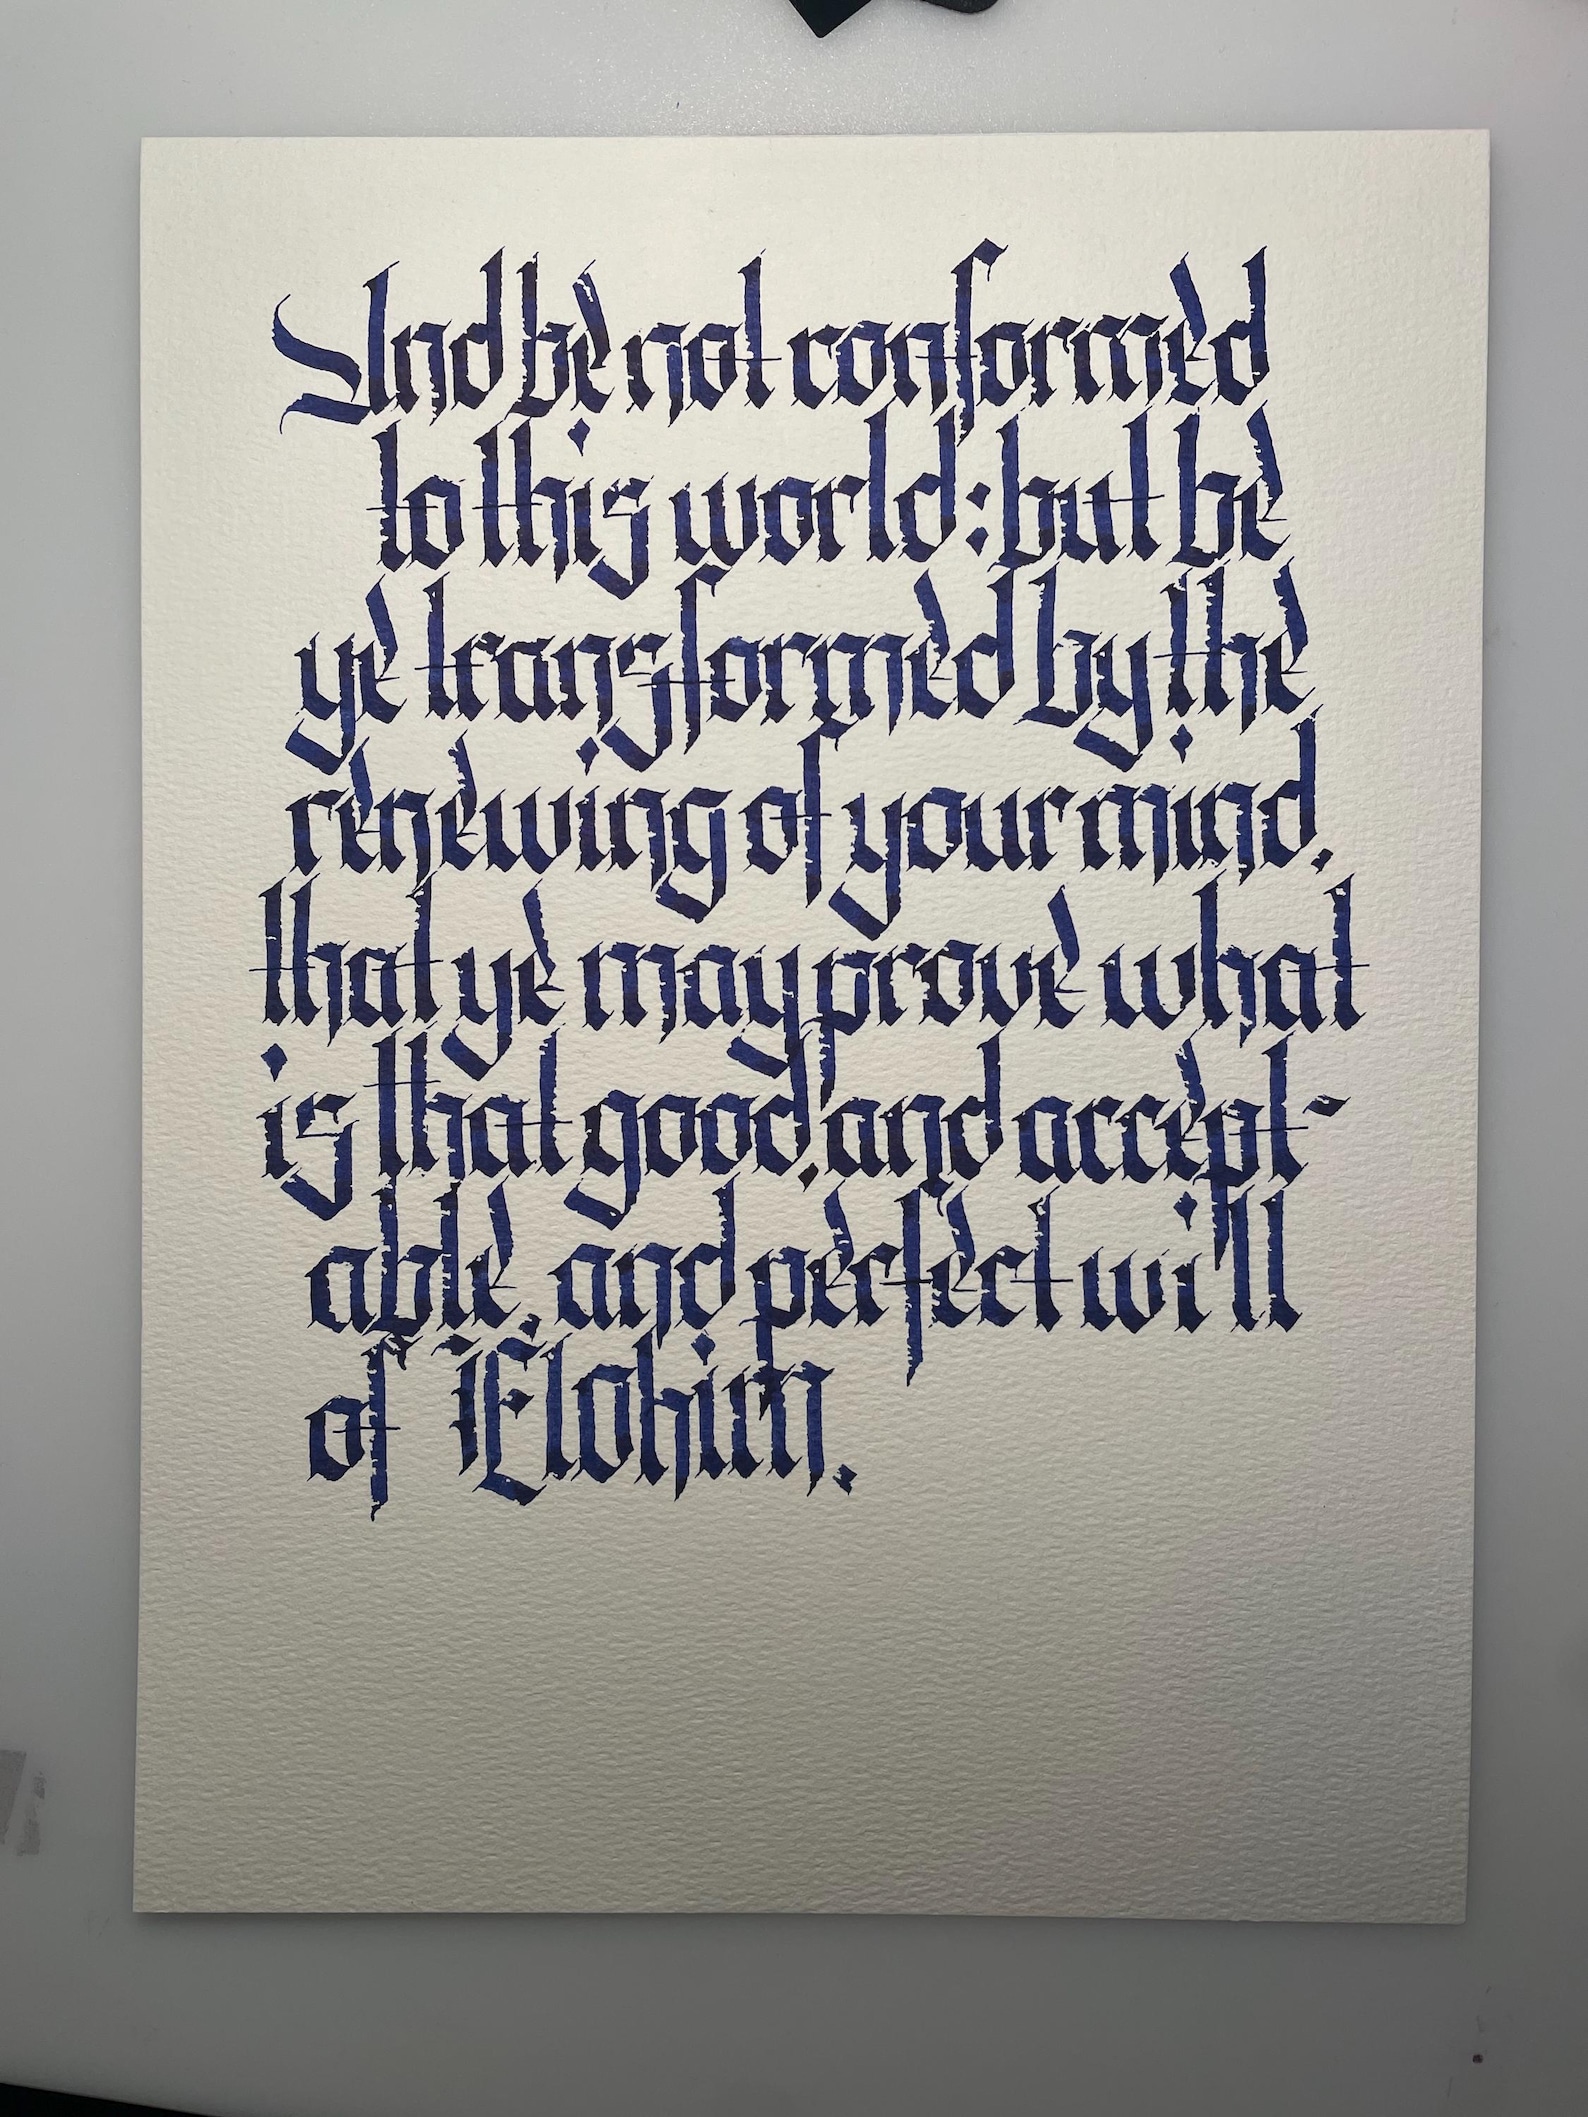 And be not conformed
to this world: but be
ye transformed by the
renewing of your mind,
that ye may prove what
is that good, and accept-
able, and perfect will
of Elohim.